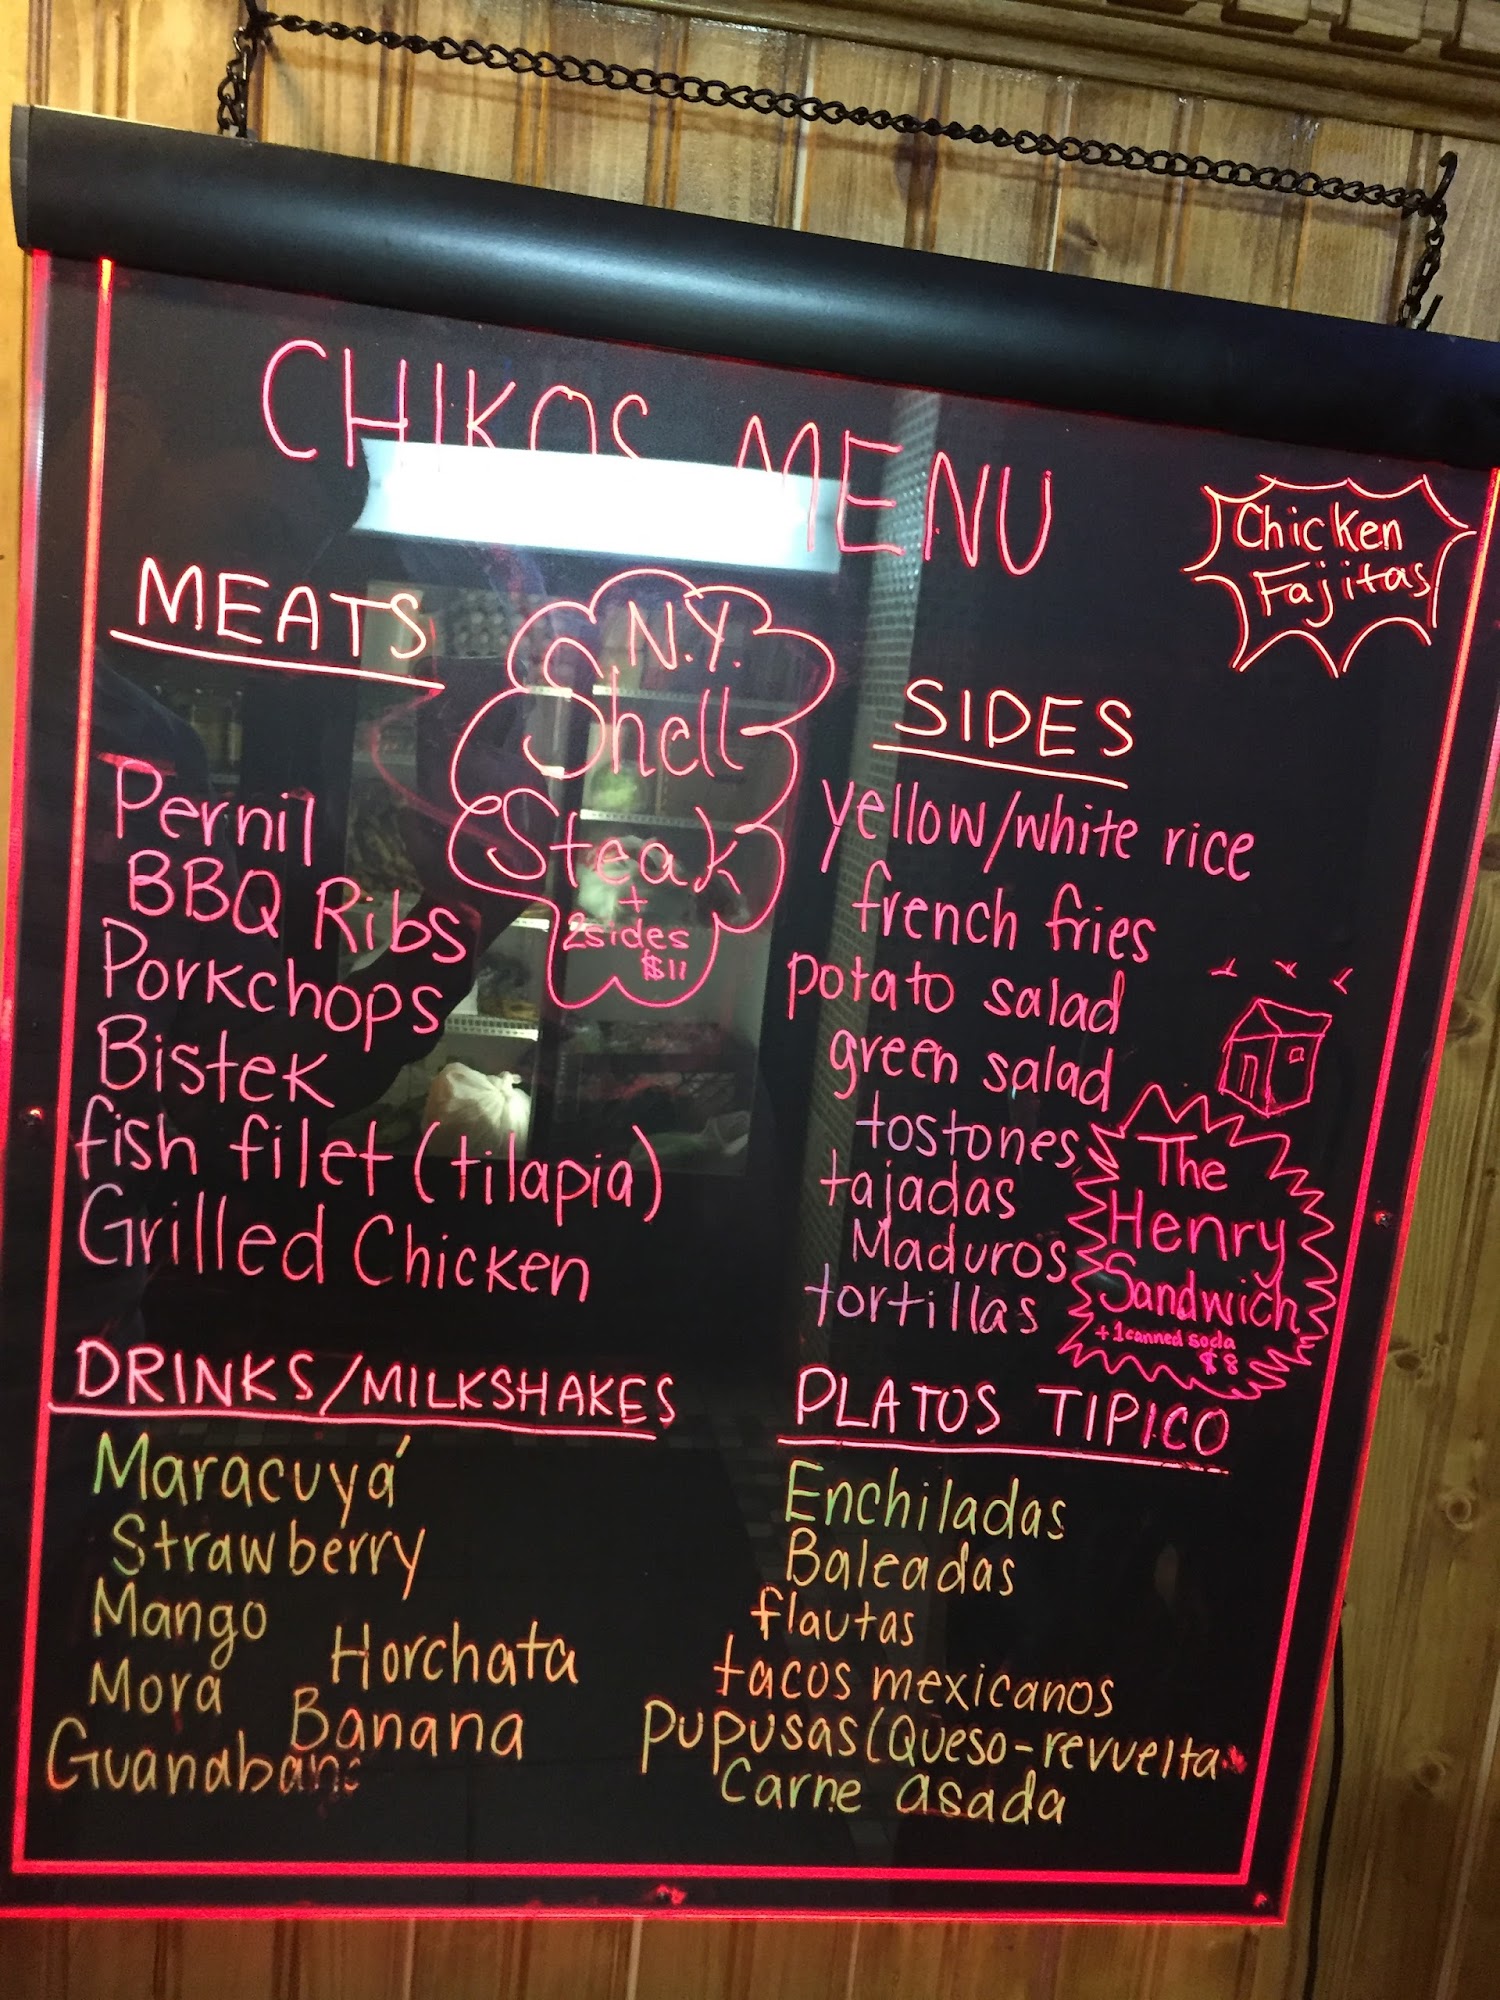 CHIKOS MENU
Chicken
Fajitas
MEATS
N.Y.
Shell
Steak
+
2sides
$11
Pernil
BBQ Ribs
Porkchops
Bistek
fish filet (tilapia)
Grilled Chicken
SIDES
yellow/white rice
french fries
potato salad
green salad
tostones
tajadas
Maduros
tortillas
The
Henry
Sandwich
+1canned soda
$8
DRINKS/MILKSHAKES
Maracuyá
Strawberry
Mango
Horchata
Mora
Banana
Guanabana
PLATOS TIPICO
Enchiladas
Baleadas
flautas
tacos mexicanos
pupusas(Queso-revuelta
Carne asada